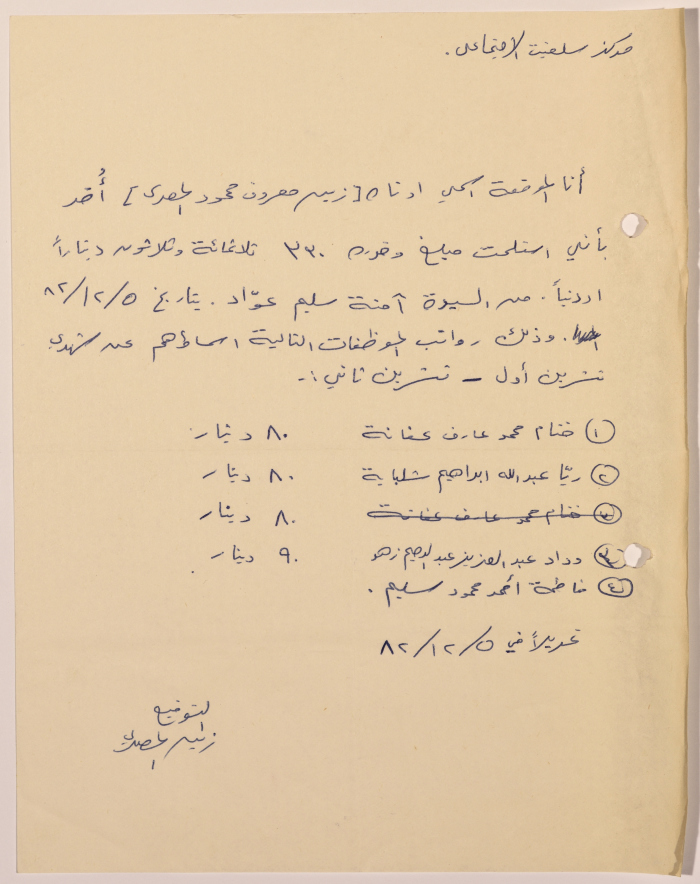 مركز سلفيت الاجتماعي .
أنا الموقعة اسمي ادناه [زينب معروف محمود المصري] أُقر
بأنني استلمت مبلغ وقدره ٣٣٠ ثلاثمائة وثلاثون ديناراً
اردنياً . من السيدة آمنة سليم عوّاد . بتاريخ ٨٢/١٢/٥
. وذلك رواتب الموظفات التالية اسماؤهم عن شهري
تشرين أول – تشرين ثاني :-
١ ختام محمد عارف عفانة ٨٠ دينار
٢ ريّا عبدالله ابراهيم شلباية ٨٠ دينار
٣ ختام محمد عارف عفانة ٨٠ دينار
٣ وداد عبد العزيز عبد الرحيم زهد ٩٠ دينار
٤ فاطمة أحمد محمود سليم .
تحريراً في ٨٢/١٢/٥
التوقيع
زينب المصري